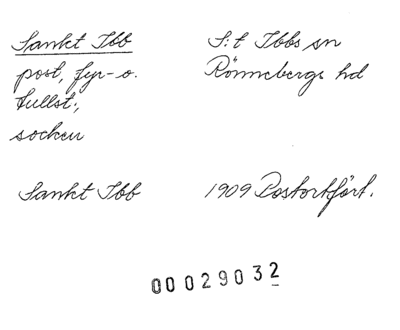 Sankt Ibb
S:t Ibbs sn
post, fyr- o.
Rönnebergs hd
tullst.,
socken
Sankt Ibb
1909 Postortfört.
00029032